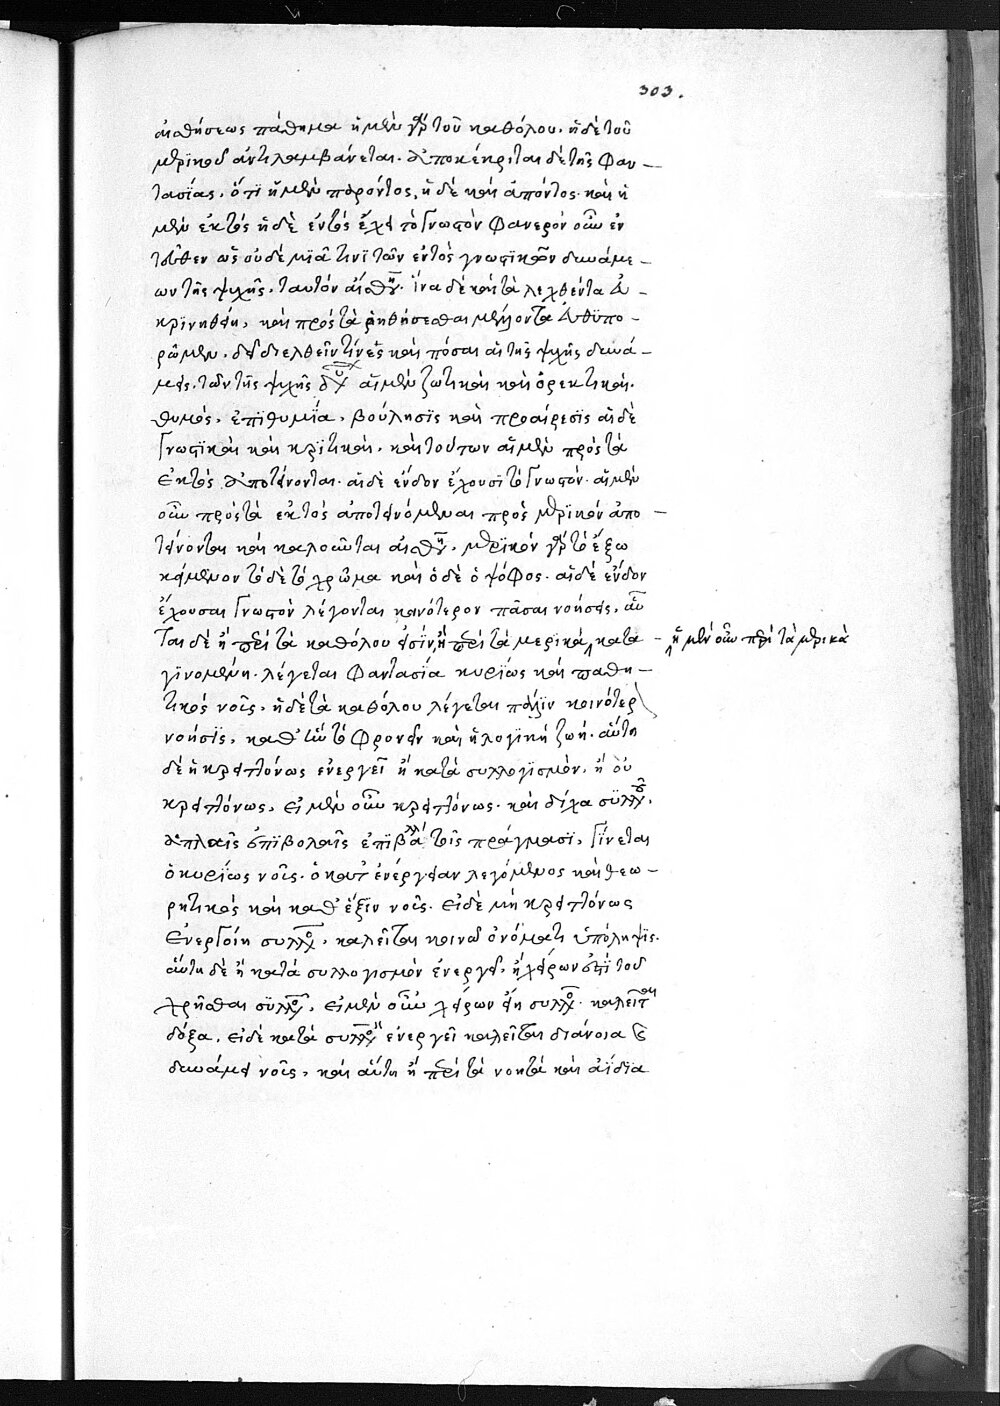 303.
αἰσθήσεως πάθημα ἡ μὲν γὰρ τοῦ καθόλου. ἡ δὲ τοῦ
μερικοῦ ἀντιλαμβάνεται. ἀποκέκριται δὲ τῆς φαν-
τασίας, ὅτι ἡ μὲν παρόντος, ἡ δὲ καὶ ἀπόντος. καὶ ἡ
μὲν ἐκτὸς ἡ δὲ ἐντὸς ἔχει τὸ γνωστὸν φανερὸν οὖν ἐν
τεῦθεν ὡς οὐδὲ μιᾷ τινὶ τῶν ἐντὸς γνωστικῶν δυνάμε-
ων τῆς ψυχῆς, ταυτὸν αἴσθη. ἵνα δὲ καὶ τὰ λεχθέντα δι-
κρινηθείη, καὶ πρὸς τὰ ῥηθήσεσθαι μέλλοντα εὐθυπο-
ρῶμεν. δεῖ διελθεῖν τίνες καὶ πόσαι αἱ τῆς ψυχῆς δυνά-
μεις. τῶν τῆς ψυχῆς δυ αἱ μὲν ζωτικαὶ καὶ ὀρεκτικαί.
θυμός, ἐπϊθυμΐα, βούλησϊς καὶ προαίρεσϊς αἱ δὲ
γνωστϊκαὶ καὶ κρϊτικαί. καὶ τούτων αἱ μὲν πρὸς τὰ
ἐκτὸς ἀποτείνονται. αἱ δὲ ἔνδον ἔχουσϊ τὸ γνωστόν. αἱ μὲν
οὖν πρὸς τὰ ἐκτὸς ἀποτεινόμεναι πρὸς μερϊκὸν ἀπο-
τείνονται καὶ καλοῦνται αἰσθή. μερϊκὸν γὰρ τὸ ἔξω
κείμενον τόδε τὸ χρῶμα καὶ ὁ δὲ ὁ ψόφος. αἱ δὲ ἔνδον
ἔχουσαι γνωστὸν λέγονται κοινότερον πᾶσαι νοήσεις, αὗ
ται δὲ ἢ περὶ τὰ καθόλου εἰσίν, ἢ περὶ τὰ μερικά, κατα-
ἡ μὲν οὖν περὶ τὰ μερικὰ
γϊνομένη. λέγεται φαντασία κυρίως καὶ παθη-
τικὸς νοῦς. ἡ δὲ τὰ καθόλου λέγεται πάλϊν κοινότερ
νοήσϊς, καθ' ἣν τὸ φρονεῖν καὶ ἡ λογϊκὴ ζωή. αὕτη
δὲ ἢ κρειττόνως ἐνεργεῖ ἢ κατὰ συλλογϊσμόν. ἢ οὐ
κρειττόνως. εἰ μὲν οὖν κρειττόνως. καὶ δίχα συλλο,
ἁπλαῖς ἐπϊβολαῖς ἐπϊβάλλει τοῖς πράγμασϊ, γίνεται
ὁ κυρίως νοῦς. ὁ κατ' ἐνέργειαν λεγόμενος καὶ θεω-
ρητικὸς καὶ καθ' ἕξϊν νοῦς. εἰ δὲ μὴ κρειττόνως
ἐνεργοίη συλλο, καλεῖται κοινῷ ὀνόματι ὑπόληψϊς.
αὕτη δὲ ἢ κατὰ συλλογισμὸν ἐνεργεῖ, ἢ χείρων ἐστὶ τοῦ
χρῆσθαι συλλο, εἰ μὲν οὖν χείρων εἴη συλλο. καλεῖται
δόξα. εἰ δὲ κατὰ συλλο ἐνεργεῖ καλεῖται διάνοια καὶ
δυνάμει νοῦς. καὶ αὕτη ἢ περὶ τὰ νοητὰ καὶ ἀΐδϊα